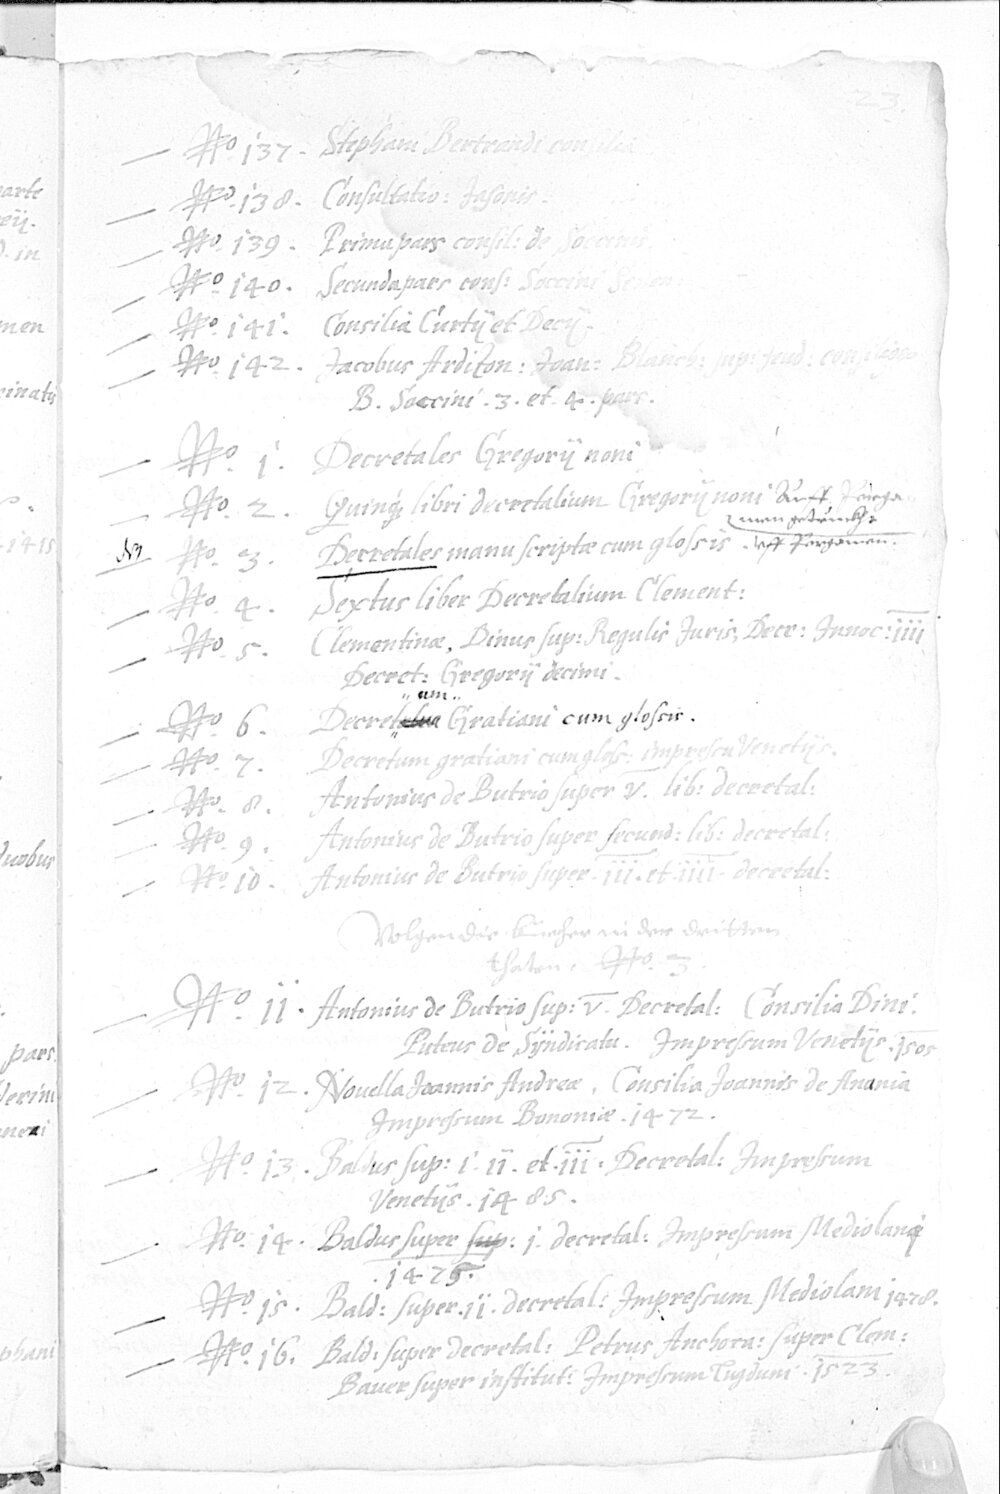 23.
— No. 137 - Stephani Bertrandi consilia
— No. 138. Consultatio: Jasonis.
— No. 139. Prima pars consil: de Soccini
— No. 140. Secunda pars cons: Soccini Senen:
— No. 141. Consilia Curtij et Decij.
— No. 142. Jacobus Ardizon: Joan: Blanch: sup: feud:
B. Soccini. 3. et. 4. pars.
— No. 1. Decretales Gregorij noni
— No. 2. Quinq; libri decretalium Gregorij noni Auff Perga
men getruckht
NB No. 3. Decretales manu scriptæ cum glossis. vff Pergamen.
— No. 4. Sextus liber Decretalium Clement:
— No. 5. Clementinæ, Dinus sup: Regulis Juris, Decr: Innoc: iiii
Decret: Gregorij decimi.
um
— No. 6. Decretalia Gratiani cum glossis.
— No. 7. Decretum gratiani cum gloss: impressu Venetijs.
— No. 8. Antonius de Butrio super v. lib: decretal:
— No. 9. Antonius de Butrio super secund: lib: decretal:
— No. 10. Antonius de Butrio super iii. et iiii decretal:
Volgen die bücher in der dritten
No. 3.
— No. 11. Antonius de Butrio sup: v. Decretal: Consilia Dini.
Puteus de Syndicatu. Impressum Venetijs. 1505
— No. 12. Nouella Joannis Andreæ, Consilia Joannis de Anania
Impressum Bononiæ. 1472.
— No. 13. Baldus sup: i. ii. et. iii. Decretal: Impressum
Venetijs. 1485.
— No. 14. Baldus super sup: j. decretal: Impressum Mediolani
. 1475.
— No. 15. Bald: super. ii. decretal: Impressum Mediolani 1478.
— No. 16. Bald: super decretal: Petrus Anchora: super Clem:
Bauer super institut: Impressum Lugduni. 1523.